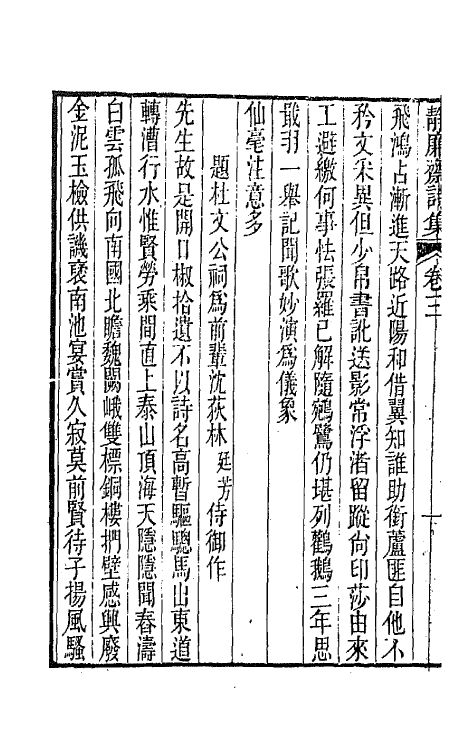 靜廉齋詩集 卷三 一
飛鴻占漸進天路近陽和借翼知誰助銜蘆匪自他不
矜文采異但少帛書訛送影常浮渚留蹤尙印莎由來
工避繳何事怯張羅已解隨鵷鷺仍堪列鸛鵝三年思
戢羽一舉記聞歌妙演爲儀象
仙毫注意多
題杜文公祠爲前輩沈荻林廷芳侍御作
先生故是開口椒拾遺不以詩名高暫驅驄馬山東道
轉漕行水惟賢勞乘閒直上泰山頂海天隱隱聞春濤
白雲孤飛向南國北瞻魏闕峨雙標銅樓捫壁感興廢
金泥玉檢供譏褒南池宴賞久寂莫前賢待子揚風騷